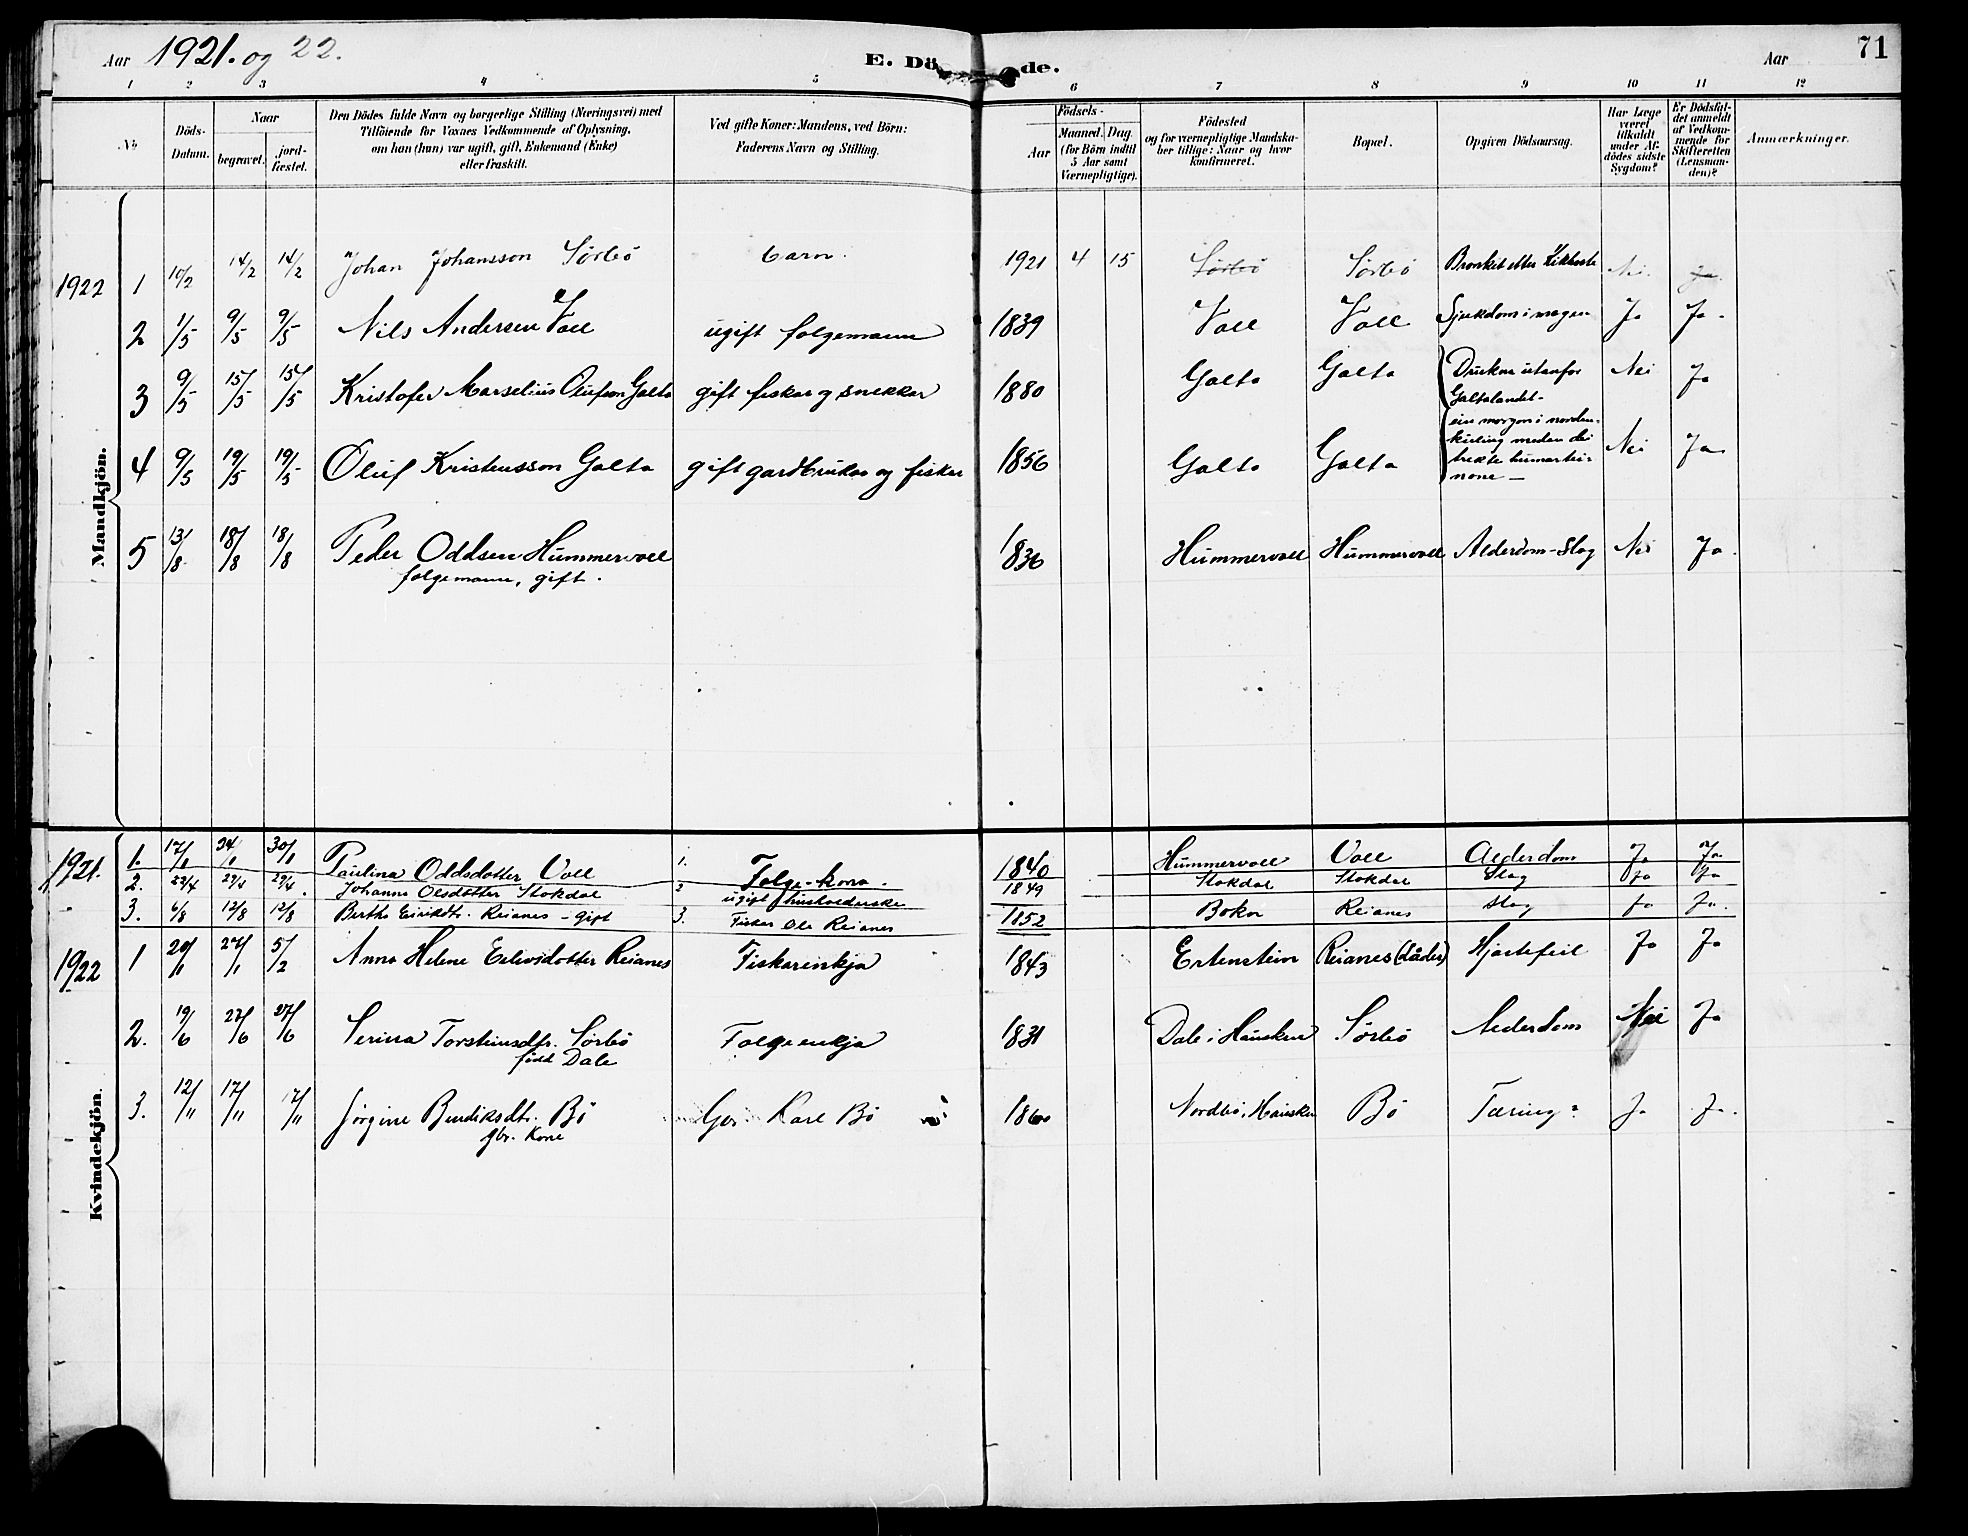 Aar 1921. og 22.
E. Döde.
Aar 71
1 2 3 4 5 6 7 8 9 10 11 12
No
Döds-Datum.
Naar
begravet.
jordfæstet.
Den Dödes fulde Navn og borgerlige Stilling (Næringsvei) med
Tilföiende for Voxnes Vedkommende af Oplysning,
om han (hun) var ugift, gift, Enkemand (Enke)
eller fraskilt.
Ved gifte Koner: Mandens, ved Börn:
Faderens Navn og Stilling.
Födsels-
Aar
Maaned. Dag
(for Börn indtil
5 Aar samt
Værnepligtige).
Födested
og for værnepligtige Mandska-
ber tillige: Naar og hvor
konfirmeret.
Bopæl.
Opgiven Dödsaarsag.
Har Læge
været
tilkaldt
under Af-
dödes sidste
Sygdom?
Er Dödsfal-
det anmeldt
af Vedkom-
mende for
Skifteretten
(Lensman-
den)?
Anmærkninger.
Mandkjön.
1922 1 10/2 14/2 14/2 Johan Johansson Sörbö barn. 1921 4 15 Sörbö Sörbö Bronkit etter Kikhoste Nei Ja
2 1/5 9/5 9/5 Nils Andersen Voll ugift folgemann 1839 Voll Voll Sjukdom i magen Ja Ja.
3 9/5 15/5 15/5 Kristofer Marselius Olufson Galta gift fiskar og snekkar 1880 Galta Galta Drukna utanfor Nei Ja
Galtalandet-
ein morgon i norden-
kuling medan dei
4 9/5 19/5 19/5 Oluf Kristensson Galta gift gardbrukar og fiskar 1856 Galta Galta trekte humartei- Nei Ja
none —
5 13/8 18/8 18/8 Peder Oddsen Hummervoll 1836 Hummervoll Hummervoll Alderdom-Slag Nei Ja.
folgemann, gift.
Kvindekjön.
1921. 1. 17/1 24/1 30/1 Paulina Oddsdotter Voll 1. Folge-kona. 1840 Hummervoll Voll Alderdom Ja Ja
2. 22/4 29/4 29/4. Johanna Olsdotter Stokdal 2 ugift husholderske 1849 Stokdal Stokdal Slag Ja Ja
3. 6/8 12/8 12/8 Bertha Eiriksdtr. Reianes - gift 3. Fiskar Ole Reianes 1852 Bokn Reianes Slag Ja Ja.
1922 1 20/1 27/1 5/2 Anna Helene Eelivsdotter Reianes Fiskarenkja 1843 Ertenstein Reianes Hjartefeil Ja Ja
2. 19/6 27/6 27/6 Serina Torsteinsdtr. Sörbö Folgeenkja 1831 Dale i Hausken Sörbö Alderdom Nei Ja
född Dale
3. 12/11 17/11 17/11 Jörgine Bendiksdtr. Bö Gbr. Karl Bö 1860 Nordbö, Hausken Bö Tæring Ja Ja.
gbr. Kone